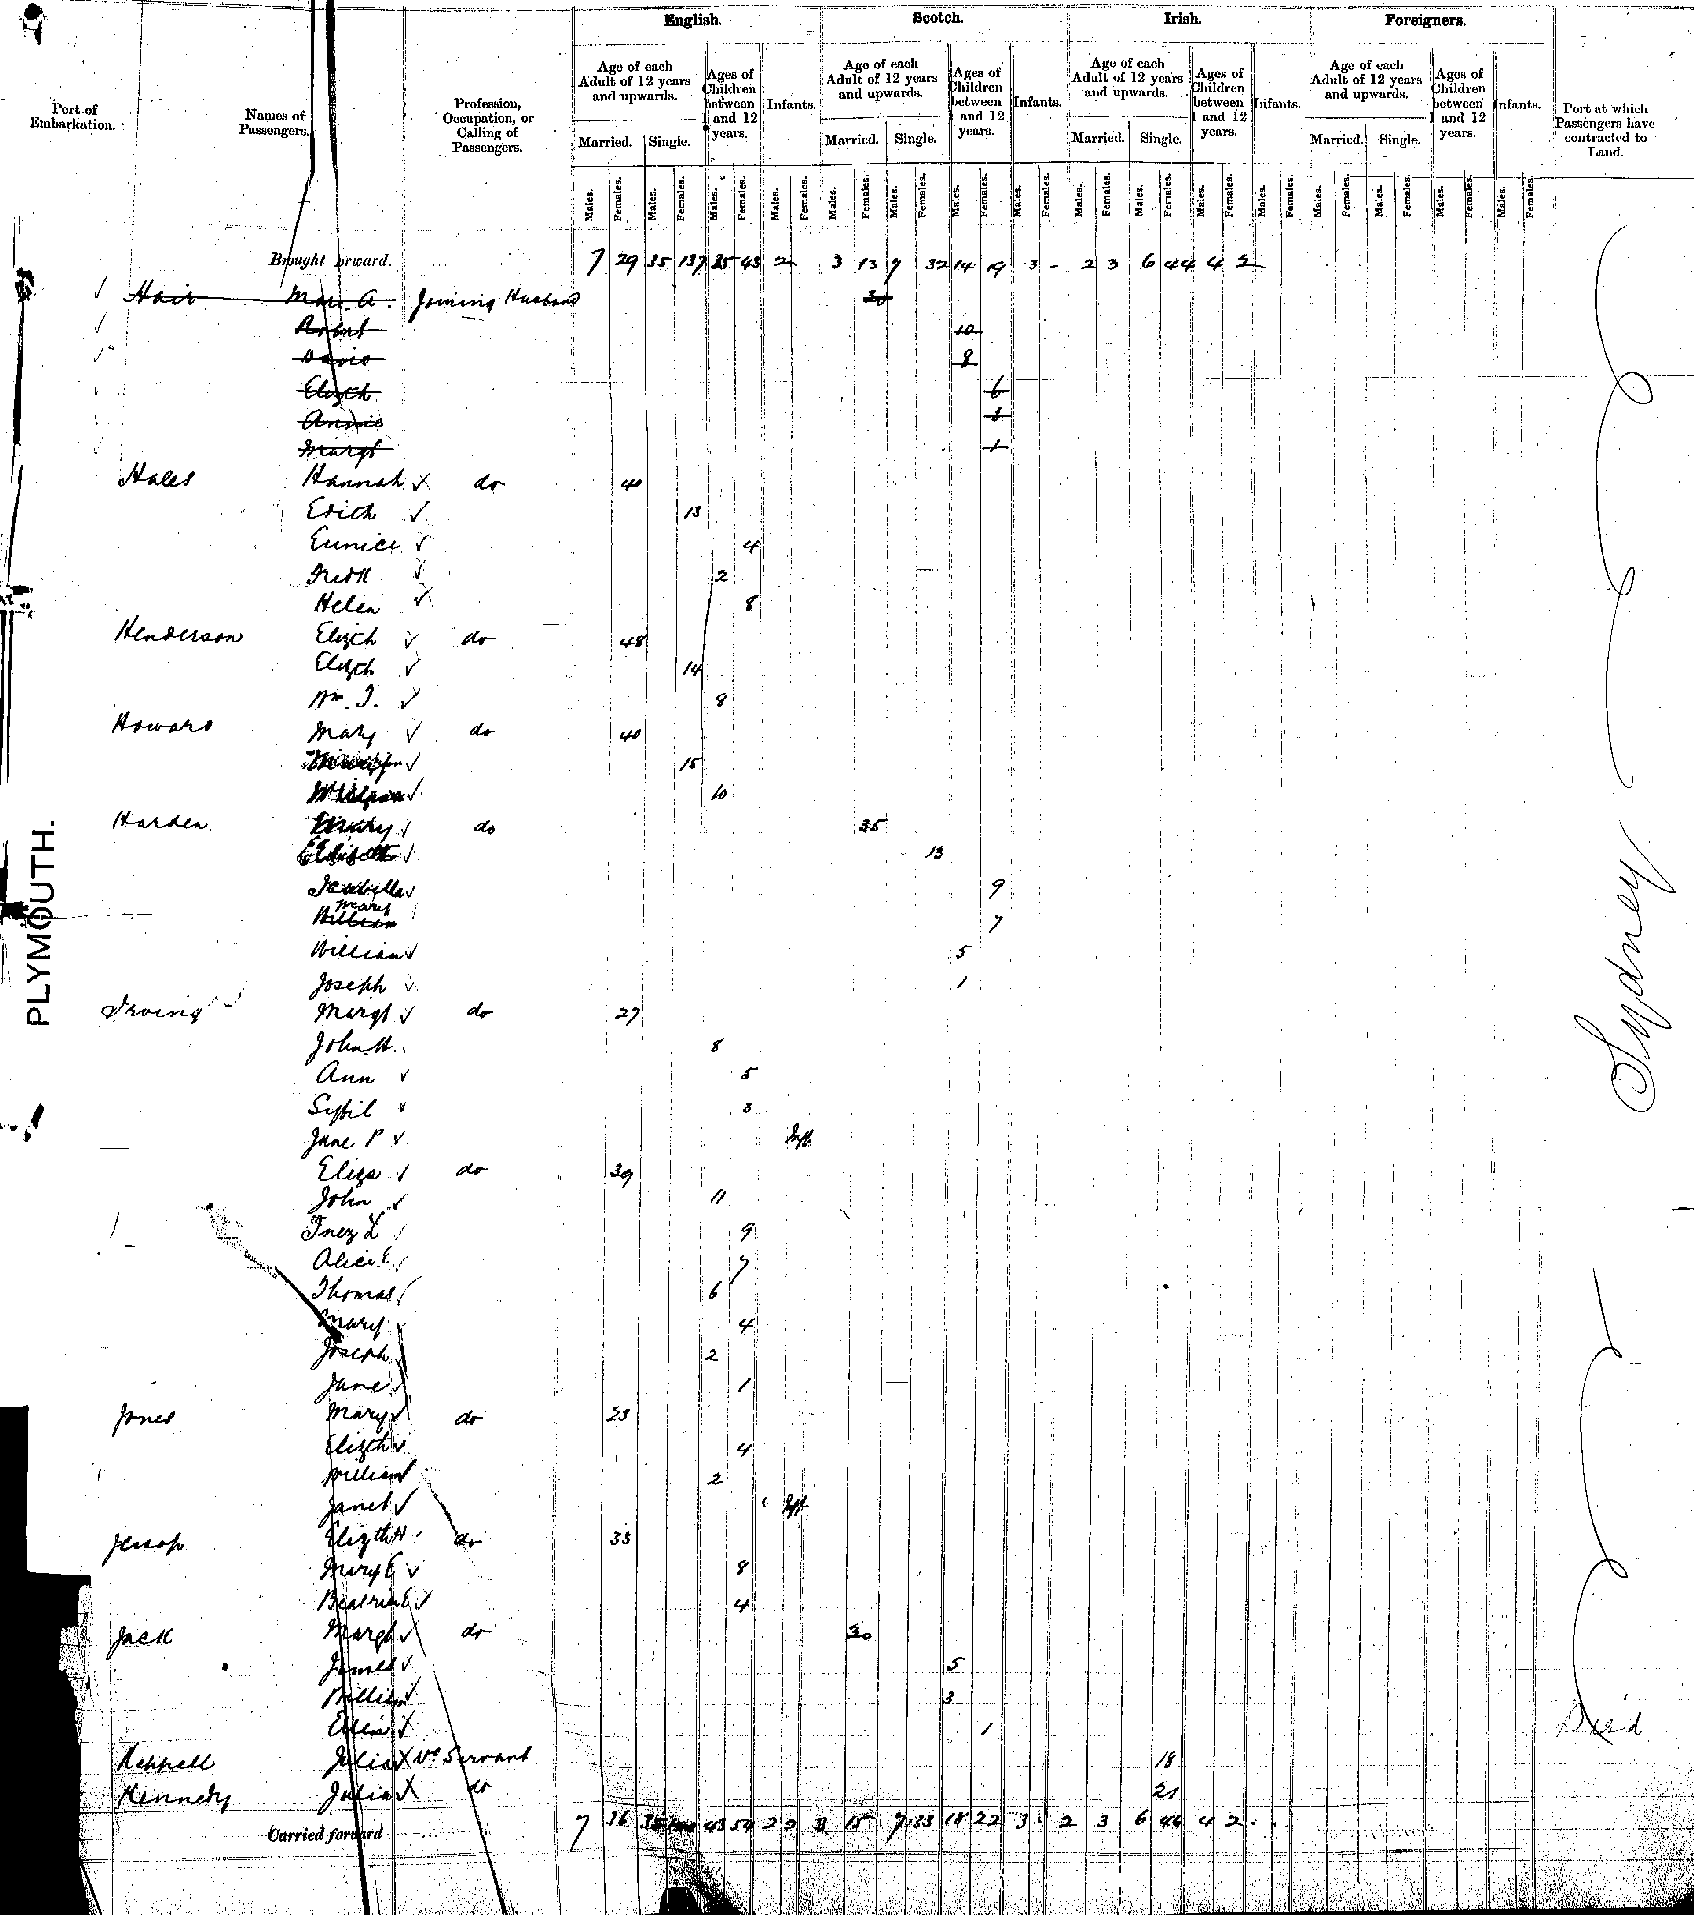 English. Scotch. Irish. Foreigners.
Port of Embarkation. Names of Passengers. Profession, Occupation, or Calling of Passengers. Age of each Adult of 12 years and upwards. Ages of Children between 1 and 12 years. Infants. Age of each Adult of 12 years and upwards. Ages of Children between 1 and 12 years. Infants. Age of each Adult of 12 years and upwards. Ages of Children between 1 and 12 years. Infants. Age of each Adult of 12 years and upwards. Ages of Children between 1 and 12 years. Infants. Port at which Passengers have contracted to Land.
Married. Single. Married. Single. Married. Single. Married. Single.
Males. Females. Males. Females. Males. Females. Males. Females. Males. Females. Males. Females. Males. Females. Males. Females. Males. Females. Males. Females. Males. Females. Males. Females. Males. Females. Males. Females. Males. Females. Males. Females.
Brought forward. 7 29 35 137 35 43 2 3 13 9 32 14 19 3 - 2 3 6 44 4 2
Hair A. Joining Husband 30
Robert 10
8
Elizth 6
Annie 3
Margt 1
Hales Hannah do 40
Edith 13
Eunice 4
Fredk 2
Helen 8
Henderson Elizth do 48
Elizth 14
Wm. J. 8
Howard Mary do 40
15
10
Harden Mary do 35
13
Isabella 9
Mary
William 7
William 5
Joseph 1
Irving Margt do 27
John H. 8
Ann 5
Sybil 3
Jane P Inft
Eliza do 39
John 11
Inez L 9
Alice E 7
Thomas 6
Mary 4
Joseph 2
Jane 1
Jones Mary do 23
Elizth 4
William 2
Janet Inft
Jessop Elizth H do 35
Mary E 8
Beatrice E 4
Jack Margt do 30
James 5
William 3
Ellen 1 Died
Julia Servant 18
Kennedy Julia do 21
Carried forward 7 36 35 43 54 2 2 3 15 9 33 18 22 3 2 3 6 46 4 2
PLYMOUTH.
Sydney